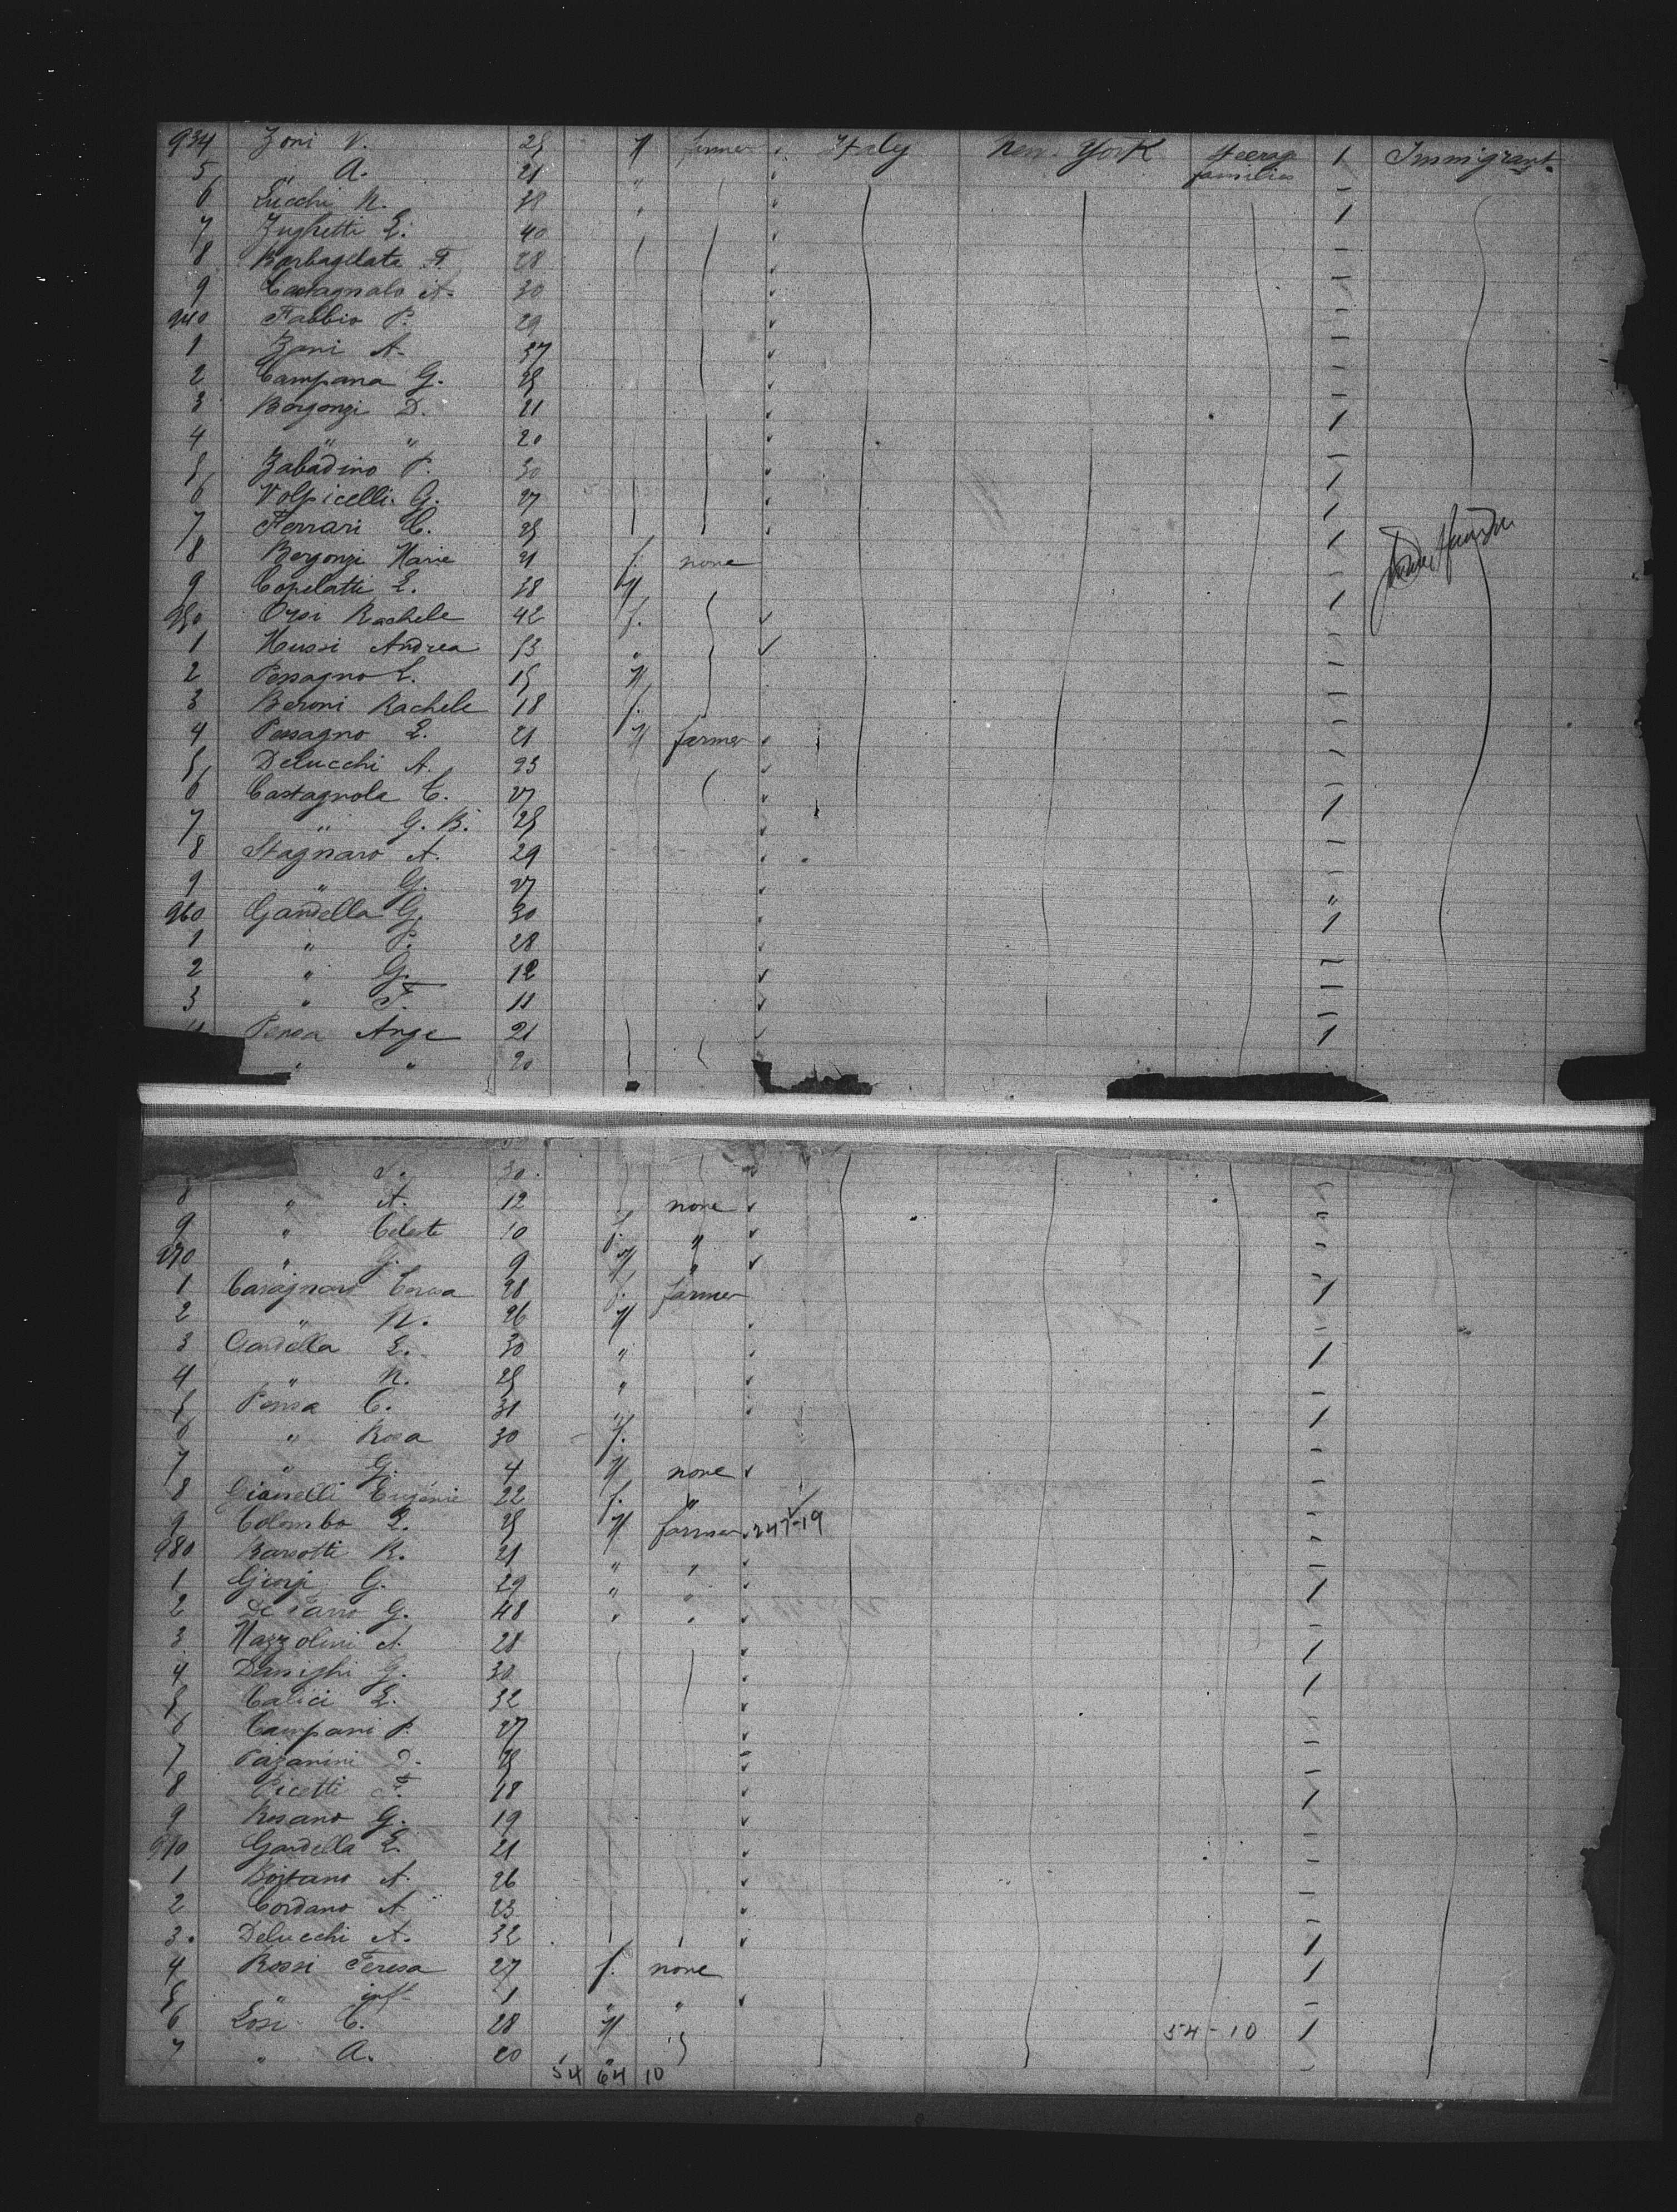 934 Zoni V. 25 M farmer Italy New York steerage families 1 Immigrant
5 " A. 21 " –
6 Lucchi N. 38 " 1
7 Zughetti E. 40 –
8 Barbagelata F. 28 –
9 Castagnalo A. 30 –
940 Fabbio P. 29 –
1 Zani A. 37 –
2 Campana G. 25 –
3 Borgonzi D. 21 1
4 " " 20 –
5 Zabadino P. 30 1
6 Volpicelli G. 27 1
7 Ferrari C. 25 1
8 Bergonzi Marie 21 f. none –
9 Copelatti E. 38 M 1
950 Orsi Rachele 42 f. –
1 Mussi Andrea 13 " –
2 Pessagno L. 15 M –
3 Beroni Rachele 18 f. –
4 Pessagno E. 21 M farmer –
5 Delucchi A. 23 –
6 Castagnola C. 27 1
7 " G. B. 25 –
8 Stagnaro A. 29 –
9 " G. 27 "
960 Gardella G. 30 1
1 " P. 28 –
2 " G. 12 –
3 " F. 11 –
Pensa Ange 21 1
" " 20
30
8 " A. 12 none –
9 " Celeste 10 f. " –
970 " G. 9 M " –
1 Cavagnaro Teresa 28 f. farmer 1
2 " N. 26 M –
3 Gardella E. 30 " 1
4 " N. 25 " –
5 Pensa C. 31 " 1
6 " Rosa 30 f. –
7 " G. 4 M none –
8 Gianelli Eugénie 22 f. " –
9 Colombo E. 25 M farmer –
980 Barsotti R. 21 " " –
1 Giorgi G. 29 " " 1
2 G. 48 " " –
3 Mazzolini A. 28 1
4 Danighi G. 30 1
5 Calici E. 32 –
6 Campani P. 27 –
7 Paganini D. 25 –
8 Picetti F. 18 1
9 Rosano G. 19 –
990 Gardella E. 21 –
1 Boitano A. 26 –
2 Cordano A. 23 –
3 Delucchi A. 32 1
4 Rossi Teresa 27 f. none 1
5 " inft 1 " " –
6 Losi C. 28 M 54-10 1
7 " A. 20 " –
54 64 10